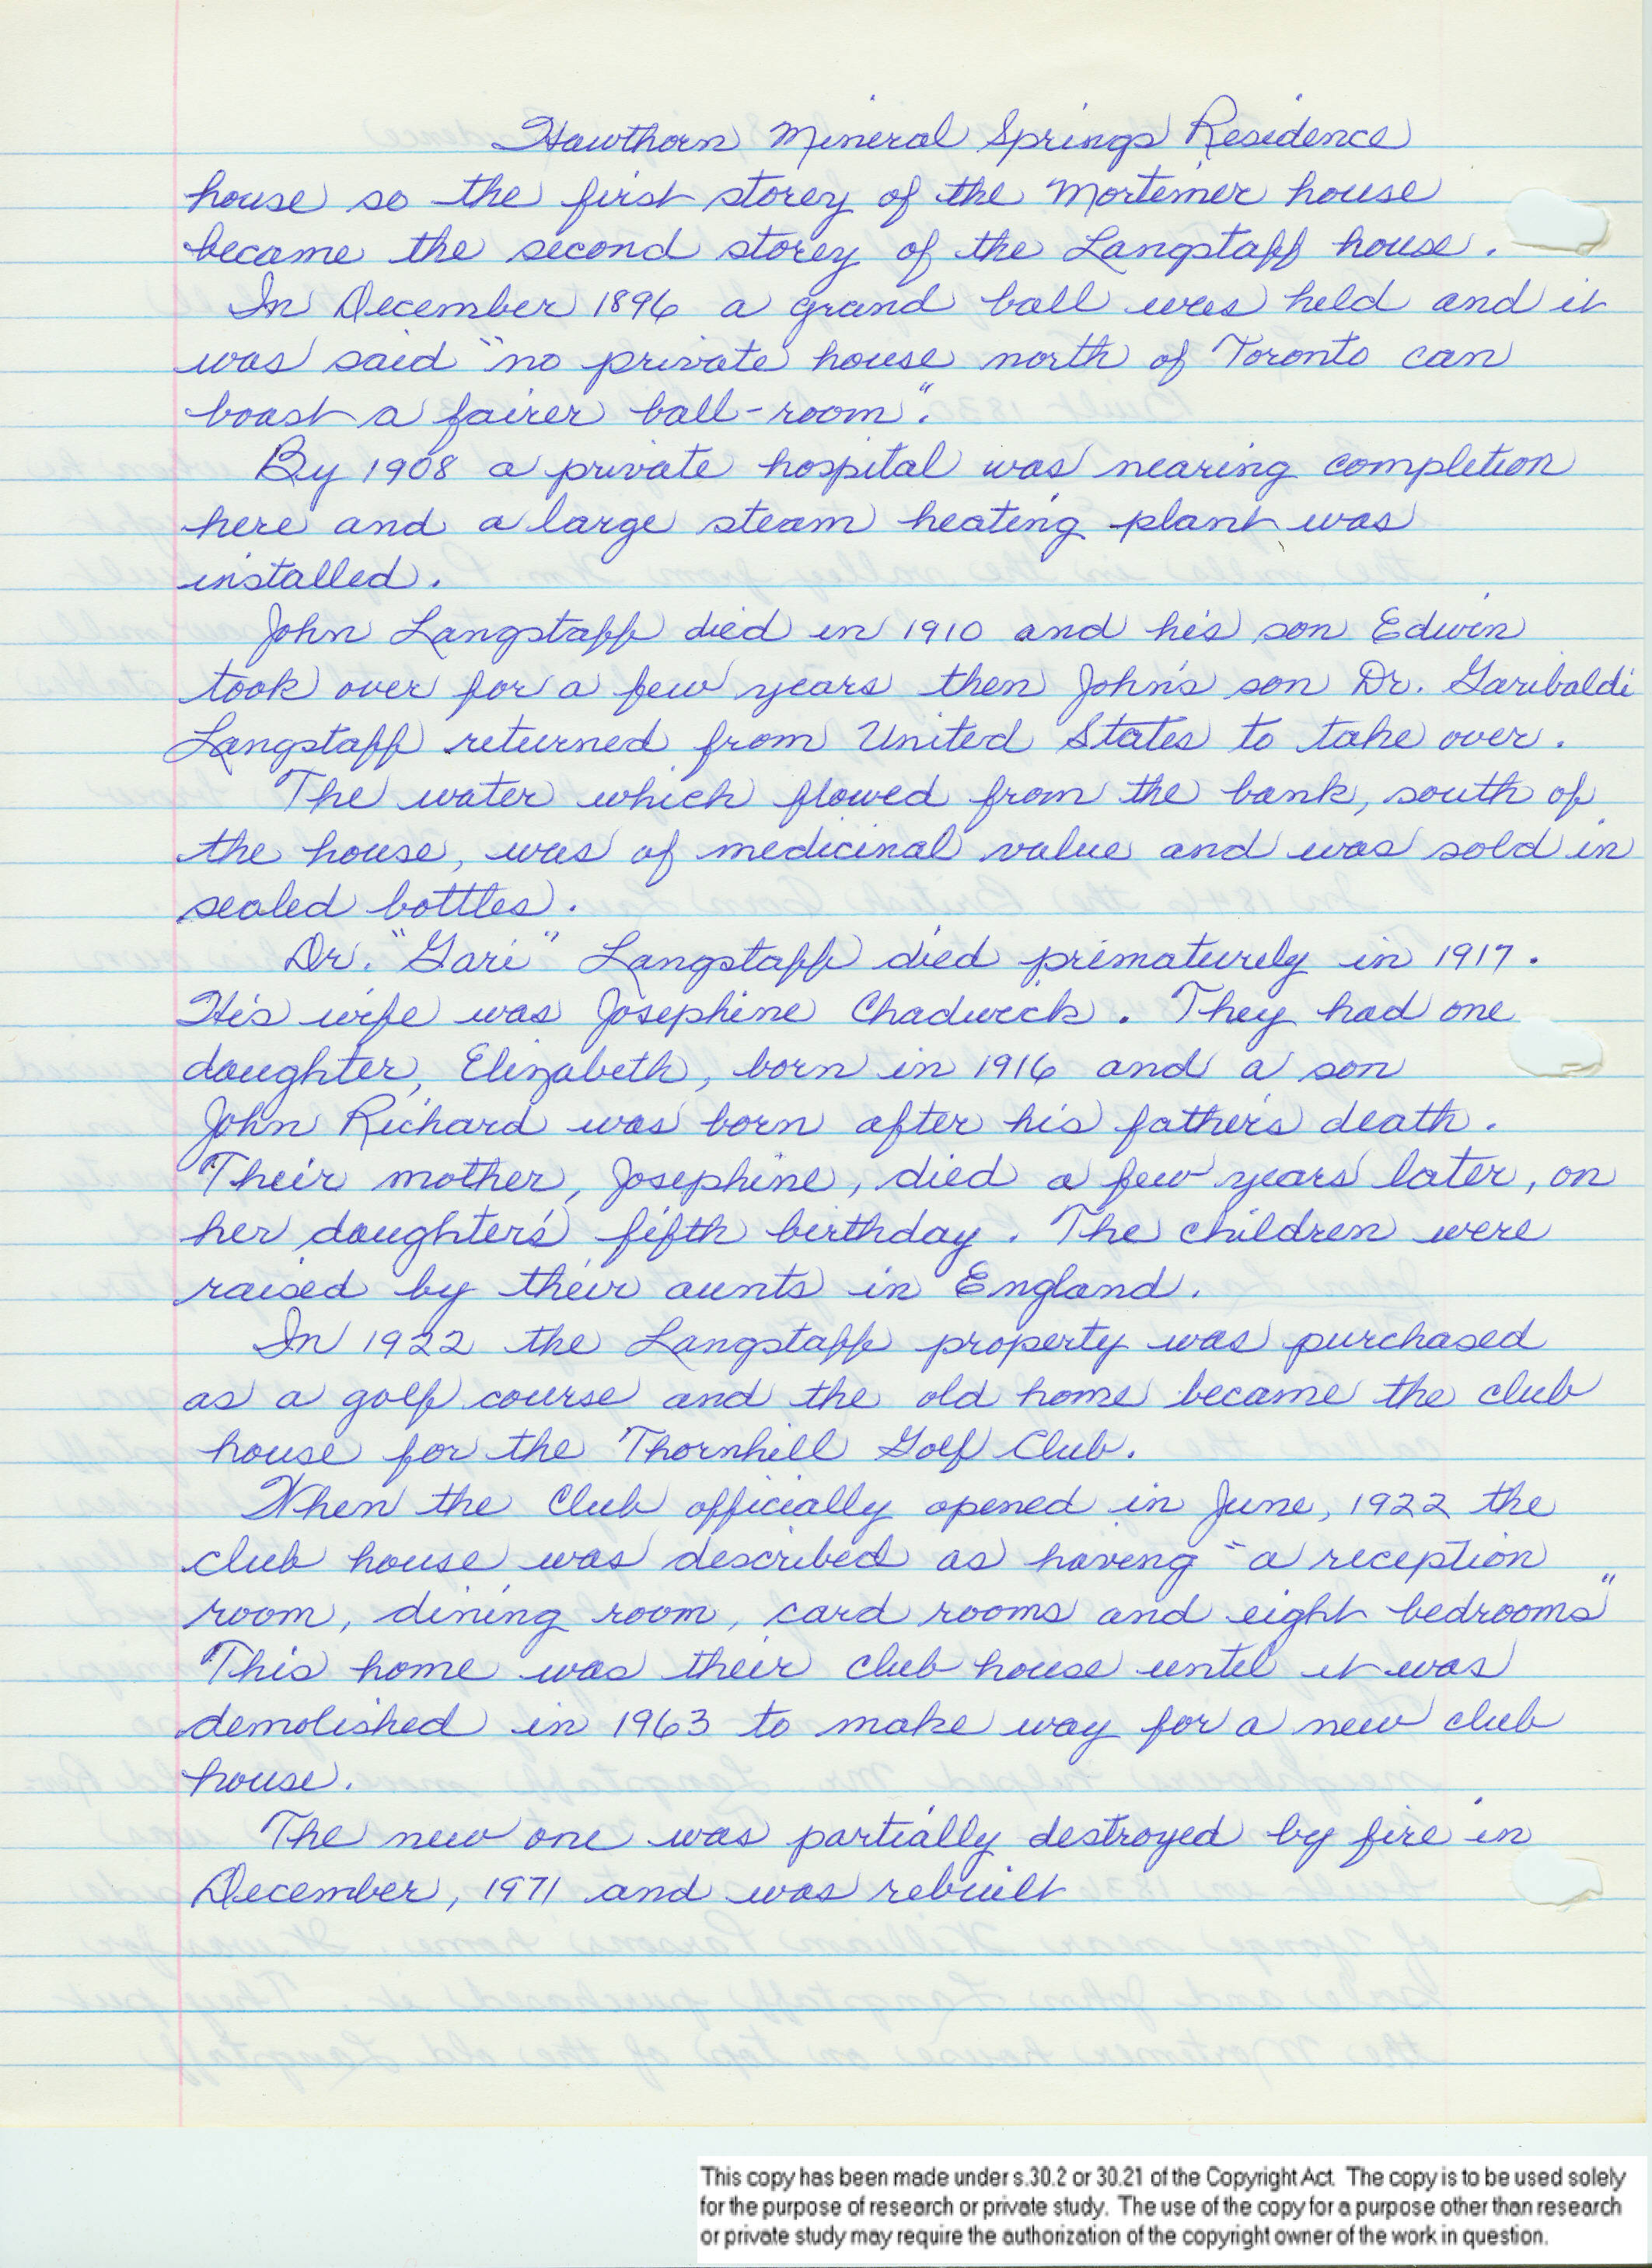 Hawthorn Mineral Springs Residence
house so the first storey of the Mortimer house
became the second storey of the Langstaff house.
In December 1896 a grand ball was held and it
was said "no private house north of Toronto can
boast a fairer ball-room".
By 1908 a private hospital was nearing completion
here and a large steam heating plant was
installed.
John Langstaff died in 1910 and his son Edwin
took over for a few years then John's son Dr. Garibaldi
Langstaff returned from United States to take over.
The water which flowed from the bank, south of
the house, was of medicinal value and was sold in
sealed bottles.
Dr. "Gari" Langstaff died primaturely in 1917.
His wife was Josephine Chadwick. They had one
daughter, Elizabeth, born in 1916 and a son
John Richard was born after his father's death.
Their mother, Josephine, died a few years later, on
her daughter's fifth birthday. The children were
raised by their aunts in England.
In 1922 the Langstaff property was purchased
as a golf course and the old home became the club
house for the Thornhill Golf Club.
When the Club officially opened in June, 1922 the
club house was described as having "a reception
room, dining room, card rooms and eight bedrooms"
This home was their club house until it was
demolished in 1963 to make way for a new club
house.
The new one was partially destroyed by fire in
December, 1971 and was rebuilt
This copy has been made under s.30.2 or 30.21 of the Copyright Act. The copy is to be used solely
for the purpose of research or private study. The use of the copy for a purpose other than research
or private study may require the authorization of the copyright owner of the work in question.